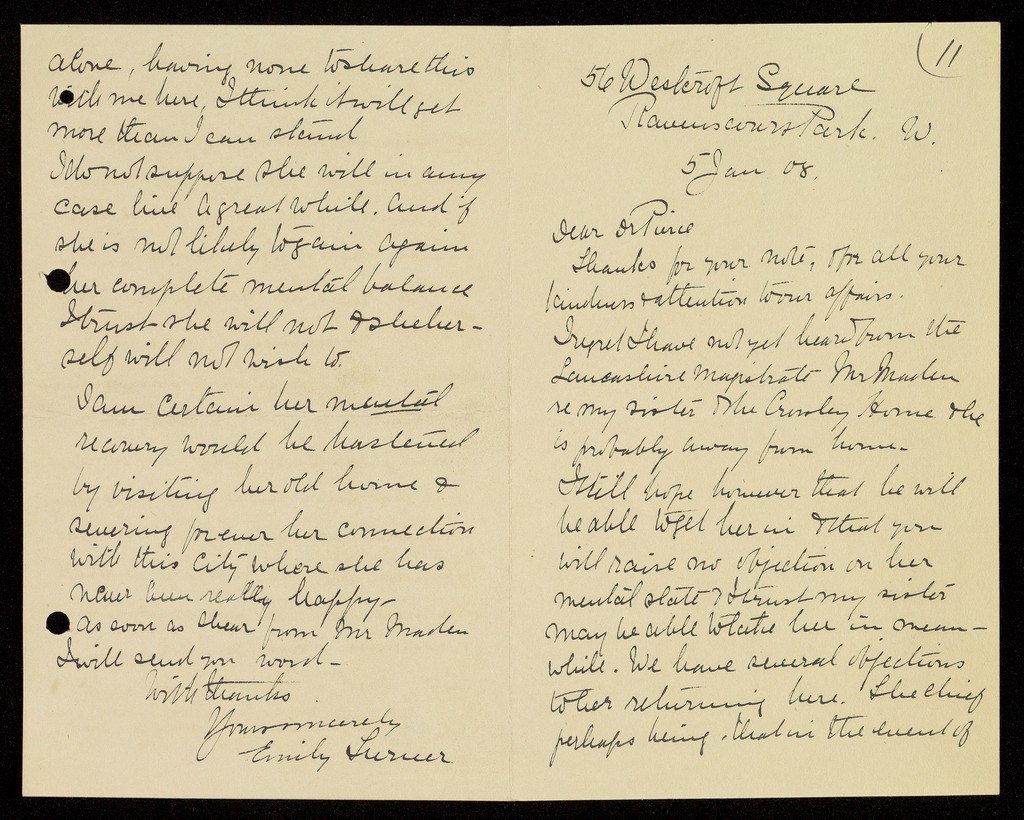 11
56 Westcroft Square
Ravenscourt Park. W.
5 Jan 08.
Dear Dr Pierce
Thanks for your note, & for all your
kindness & attention to our affairs.
I regret I have not yet heard from the
Lancashire magistrate Mr Maden
re my sister & the Crossley Home & he
is probably away from home -
I still hope however that he will
be able to get her in & that you
will raise no objection on her
mental state & I trust my sister
may be able to take her in mean-
while. We have several objections
to her returning here. The chief
perhaps being, that in the event of
alone, having none to share this
with me here, I think it will get
more than I can stand
I do not suppose she will in any
case live a great while. And if
she is not likely to gain again
her complete mental balance
I trust she will not & she her-
self will not wish to.
I am certain her mental
recovery would be hastened
by visiting her old home &
severing for ever her connection
with this City where she has
never been really happy -
As soon as I hear from Mr Maden
I will send you word -
With thanks
Yours sincerely
Emily Turner